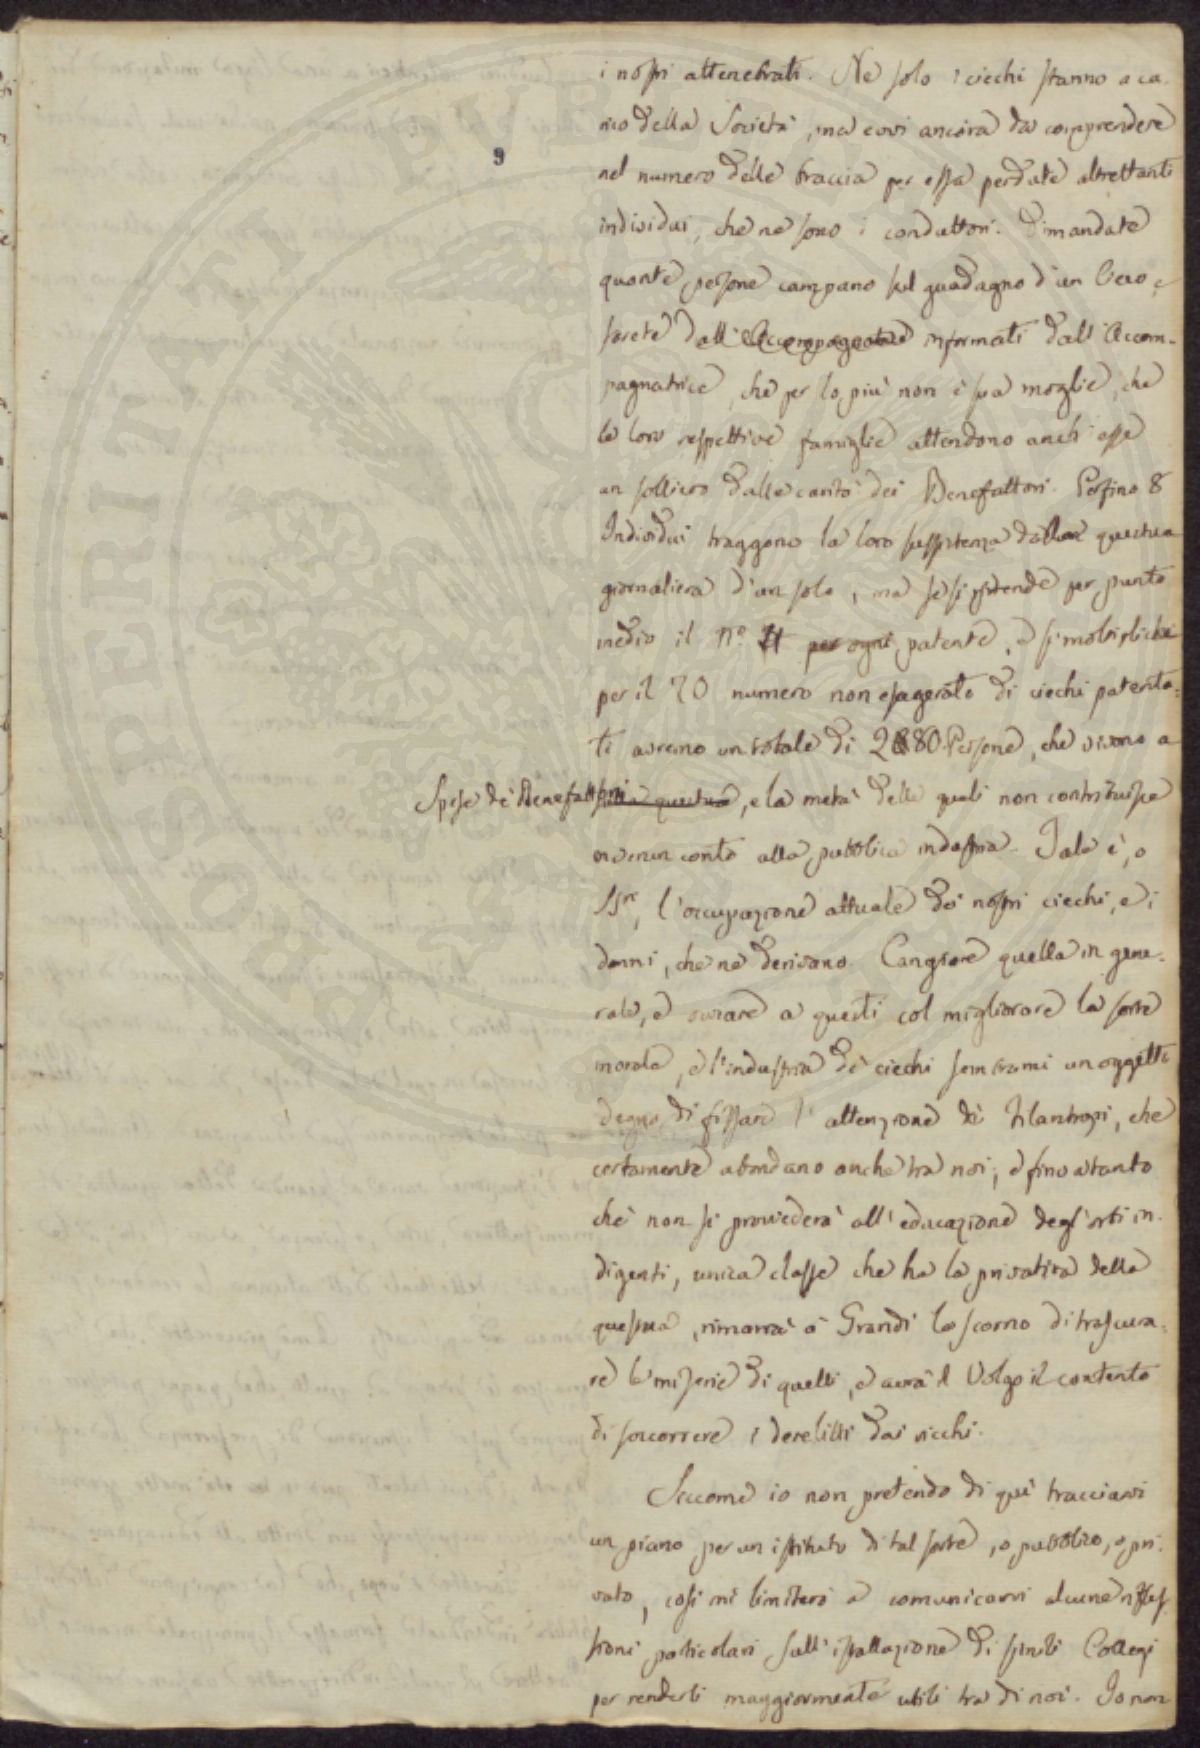 9
i nostri attenebrati. Ne solo i ciechi stanno a ca-
rico della Società, ma evvi ancora da comprendere
nel numero delle braccia per essa perdute altrettanti
individui, che ne sono i conduttori. Dimandate
quante persone campano sul guadagno d'un Cieco, e
sarete dall'Accompagnatore informati dall'Accom-
pagnatrice, che per lo più non è sua moglie, che
le loro respettive famiglie attendono anch'esse
un sollievo dalle carità dei Benefattori. Perfino 8
Individui traggono la loro sussistenza dalla questua
giornaliera d'un solo, ma se si prende per punto
medio il n.° 4 per ogni patente, e si moltiplichi
per il 70 numero non esagerato di ciechi patenta-
ti avremo un totale di 280 Persone, che vivono a
Spese de' Benefattori
alla questua, e la metà delle quali non contribuisce
in verun conto alla pubblica industria. Tale è, o
SSri, l'occupazione attuale dei nostri ciechi, e i
danni, che ne derivano. Cangiare quella in gene-
rale, e ovviare a questi col migliorare la sorte
morale, e l'industria de' ciechi sembrami un oggetto
degno di fissare l'attenzione de' Filantropi, che
certamente abondano anche tra noi; e fino a tanto
che non si provvederà all'educazione degl'orbi in-
digenti, unica classe che ha la privativa della
questua, rimarrà a' Grandi lo scorno di trascura-
re le miserie di quelli, e avrà il Volgo il contento
di soccorrere i derelitti dai ricchi.
Siccome io non pretendo di quì tracciarvi
un piano per un istituto di tal sorte, o pubblico, o pri-
vato, così mi limiterò a comunicarvi alcune rifles
sioni particolari sull'istallazione di simili Collegi
per renderli maggiormente utili tra di noi. Io non